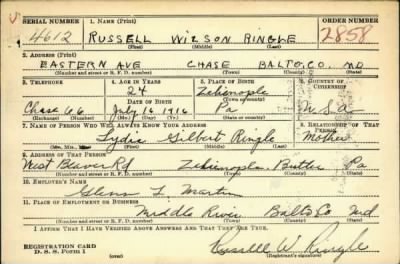 SERIAL NUMBER 1. NAME (Print) ORDER NUMBER
4612 RUSSELL WILSON RINGLE 2858
(First) (Middle) (Last)
2. ADDRESS (Print)
EASTERN AVE CHASE BALTO. CO. MD
(Number and street or R. F. D. number) (Town) (County) (State)
3. TELEPHONE 4. AGE IN YEARS 5. PLACE OF BIRTH 6. COUNTRY OF CITIZENSHIP
24 Zelienople
DATE OF BIRTH (Town or county)
Chase 66 July 16 1916 Pa U.S.A
(Exchange) (Number) (Mo.) (Day) (Yr.) (State or country)
7. NAME OF PERSON WHO WILL ALWAYS KNOW YOUR ADDRESS 8. RELATIONSHIP OF THAT PERSON
Lydia Gilbert Ringle Mother
(Mr., Mrs., Miss) (First) (Middle) (Last)
9. ADDRESS OF THAT PERSON
West Beaver Rd Zelienople, Butler Pa
(Number and street or R. F. D. number) (Town) (County) (State)
10. EMPLOYER'S NAME
Glenn L. Martin
11. PLACE OF EMPLOYMENT OR BUSINESS
Middle River Balto Co Md
(Number and street or R. F. D. number) (Town) (County) (State)
I AFFIRM THAT I HAVE VERIFIED ABOVE ANSWERS AND THAT THEY ARE TRUE.
REGISTRATION CARD
D. S. S. Form 1 Russell W. Ringle
(over) (Registrant's signature)